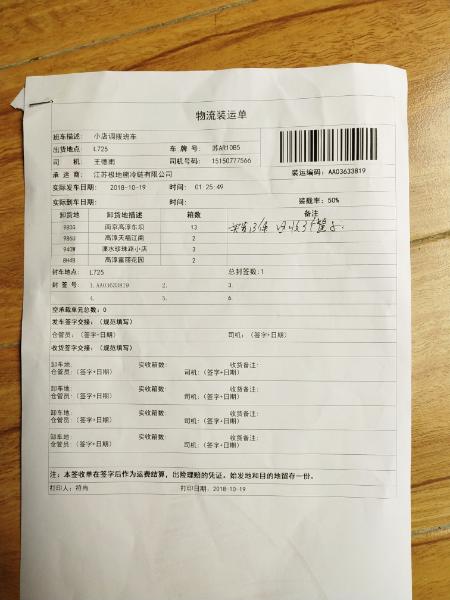 物流装运单
班车描述: 小店调拨班车
出货地点: L725 车牌号: 苏AR10B5
司机: 王德雨 司机号码: 15150777566
装运编码: AA03633819
承运商: 江苏极地熊冷链有限公司
实际发车日期: 2018-10-19 时间: 01:25:49
实际到车日期: 时间: 装载率: 50%
卸货地 卸货地描述 箱数 备注
980G 南京高淳东坝 13
986U 高淳天福江南 2
940W 溧水珍珠路小店 3
8H4B 高淳富丽花园 2
封车地点: L725 总封签数:1
封签号 1.AA03633819 2. 3.
4. 5. 6.
空承载单元总数: 0
发车签字交接: (规范填写)
仓管员: (签字+日期) 司机: (签字+日期)
收货签字交接: (规范填写)
卸车地: 实收箱数: 收货备注:
仓管员: (签字+日期) 司机: (签字+日期)
卸车地: 实收箱数: 收货备注:
仓管员: (签字+日期) 司机: (签字+日期)
卸车地: 实收箱数: 收货备注:
仓管员: (签字+日期) 司机: (签字+日期)
卸车地: 实收箱数: 收货备注:
仓管员: (签字+日期) 司机: (签字+日期)
注: 本签收单在签字后作为运费结算, 出险理赔的凭证。始发地和目的地留存一份。
打印人: 符尚 打印日期: 2018-10-19